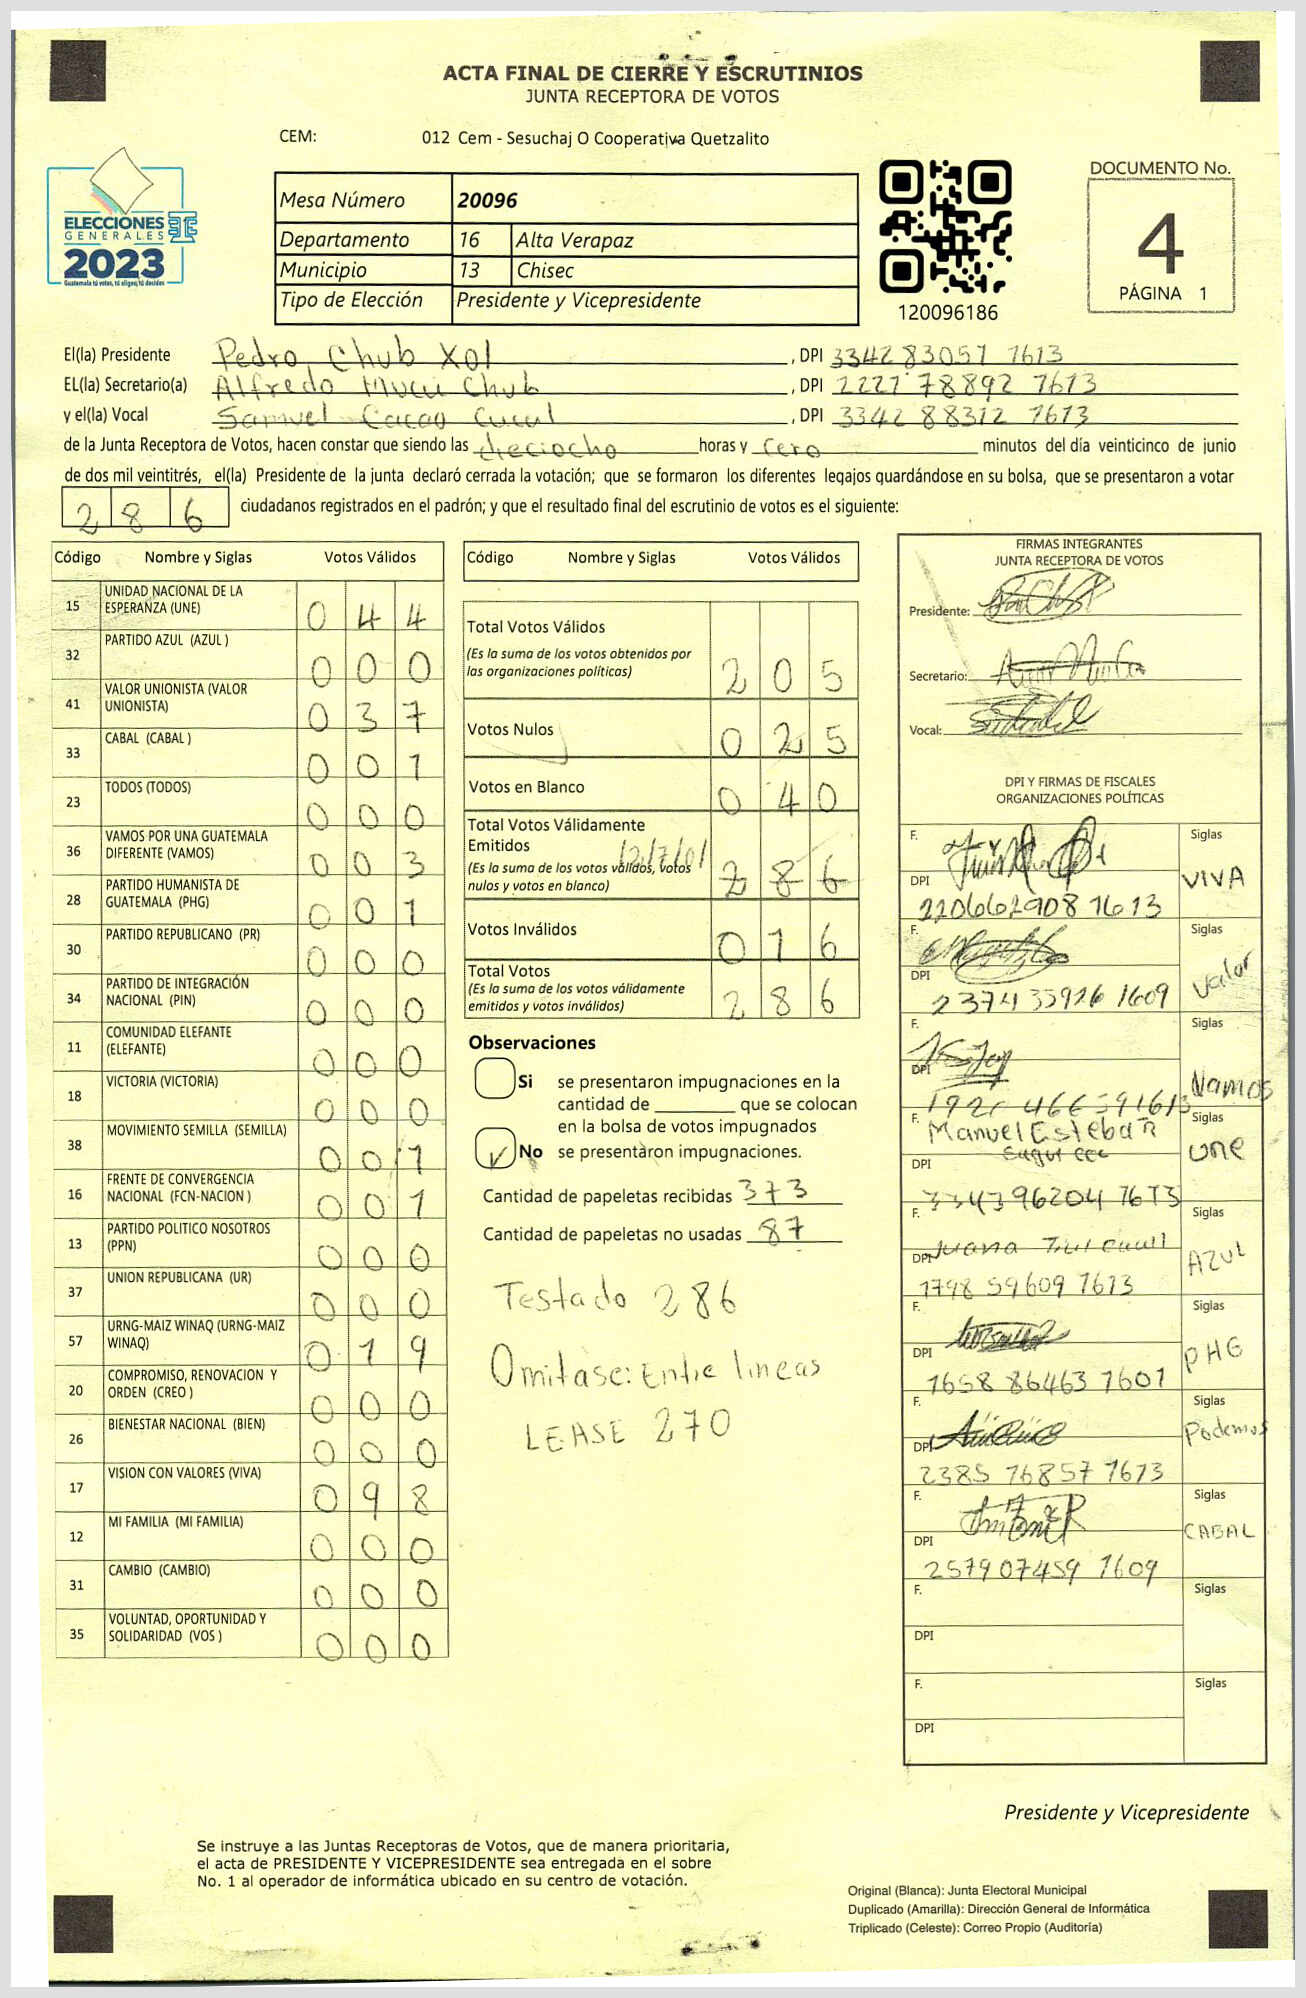 ACTA FINAL DE CIERRE Y ESCRUTINIOS
JUNTA RECEPTORA DE VOTOS
CEM: 012 Cem - Sesuchaj O Cooperativa Quetzalito
ELECCIONES
GENERALES
2023
Guatemala tú votes, tú eliges, tú decides
Mesa Número 20096
Departamento 16 Alta Verapaz
Municipio 13 Chisec
Tipo de Elección Presidente y Vicepresidente
120096186
DOCUMENTO No.
4
PÁGINA 1
El(la) Presidente Pedro Chub Xol , DPI 3342 83057 1613
EL(la) Secretario(a) Alfredo Mucu Chub , DPI 2227 78892 1613
y el(la) Vocal Samuel Cacao Cucul , DPI 3342 88312 1613
de la Junta Receptora de Votos, hacen constar que siendo las dieciocho horas y cero minutos del día veinticinco de junio
de dos mil veintitrés, el(la) Presidente de la junta declaró cerrada la votación; que se formaron los diferentes legajos guardándose en su bolsa, que se presentaron a votar
286 ciudadanos registrados en el padrón; y que el resultado final del escrutinio de votos es el siguiente:
Código Nombre y Siglas Votos Válidos
15 UNIDAD NACIONAL DE LA ESPERANZA (UNE) 0 4 4
32 PARTIDO AZUL (AZUL ) 0 0 0
41 VALOR UNIONISTA (VALOR UNIONISTA) 0 3 7
33 CABAL (CABAL ) 0 0 1
23 TODOS (TODOS) 0 0 0
36 VAMOS POR UNA GUATEMALA DIFERENTE (VAMOS) 0 0 3
28 PARTIDO HUMANISTA DE GUATEMALA (PHG) 0 0 1
30 PARTIDO REPUBLICANO (PR) 0 0 0
34 PARTIDO DE INTEGRACIÓN NACIONAL (PIN) 0 0 0
11 COMUNIDAD ELEFANTE (ELEFANTE) 0 0 0
18 VICTORIA (VICTORIA) 0 0 0
38 MOVIMIENTO SEMILLA (SEMILLA) 0 0 1
16 FRENTE DE CONVERGENCIA NACIONAL (FCN-NACION ) 0 0 1
13 PARTIDO POLITICO NOSOTROS (PPN) 0 0 0
37 UNION REPUBLICANA (UR) 0 0 0
57 URNG-MAIZ WINAQ (URNG-MAIZ WINAQ) 0 1 9
20 COMPROMISO, RENOVACION Y ORDEN (CREO ) 0 0 0
26 BIENESTAR NACIONAL (BIEN) 0 0 0
17 VISION CON VALORES (VIVA) 0 9 8
12 MI FAMILIA (MI FAMILIA) 0 0 0
31 CAMBIO (CAMBIO) 0 0 0
35 VOLUNTAD, OPORTUNIDAD Y SOLIDARIDAD (VOS ) 0 0 0
Código Nombre y Siglas Votos Válidos
Total Votos Válidos 2 0 5
(Es la suma de los votos obtenidos por
las organizaciones políticas)
Votos Nulos 0 2 5
Votos en Blanco 0 4 0
Total Votos Válidamente
Emitidos 2/7/0/ 2 8 6
(Es la suma de los votos válidos, votos
nulos y votos en blanco)
Votos Inválidos 0 1 6
Total Votos 2 8 6
(Es la suma de los votos válidamente
emitidos y votos inválidos)
Observaciones
Si se presentaron impugnaciones en la
cantidad de ________ que se colocan
en la bolsa de votos impugnados
No se presentaron impugnaciones.
Cantidad de papeletas recibidas 373
Cantidad de papeletas no usadas 87
Testado 286
Omitase: Entre lineas
LEASE 270
FIRMAS INTEGRANTES
JUNTA RECEPTORA DE VOTOS
Presidente:
Secretario:
Vocal:
DPI Y FIRMAS DE FISCALES
ORGANIZACIONES POLÍTICAS
F. Siglas
DPI VIVA
220662908 1613
F. Siglas
DPI Valor
2374 35926 1609
F. Siglas
DPI Vamos
F. Manuel Esteban Siglas
DPI UNE
334396204 1613
F. Siglas
DPI Juana AZUL
1798 59609 1613
F. Siglas
DPI PHG
1658 86463 1601
F. Siglas
DPI Podemos
2385 76857 1613
F. Siglas
DPI CABAL
257907459 1609
F. Siglas
DPI
F. Siglas
DPI
Presidente y Vicepresidente
Se instruye a las Juntas Receptoras de Votos, que de manera prioritaria,
el acta de PRESIDENTE Y VICEPRESIDENTE sea entregada en el sobre
No. 1 al operador de informática ubicado en su centro de votación.
Original (Blanca): Junta Electoral Municipal
Duplicado (Amarilla): Dirección General de Informática
Triplicado (Celeste): Correo Propio (Auditoría)